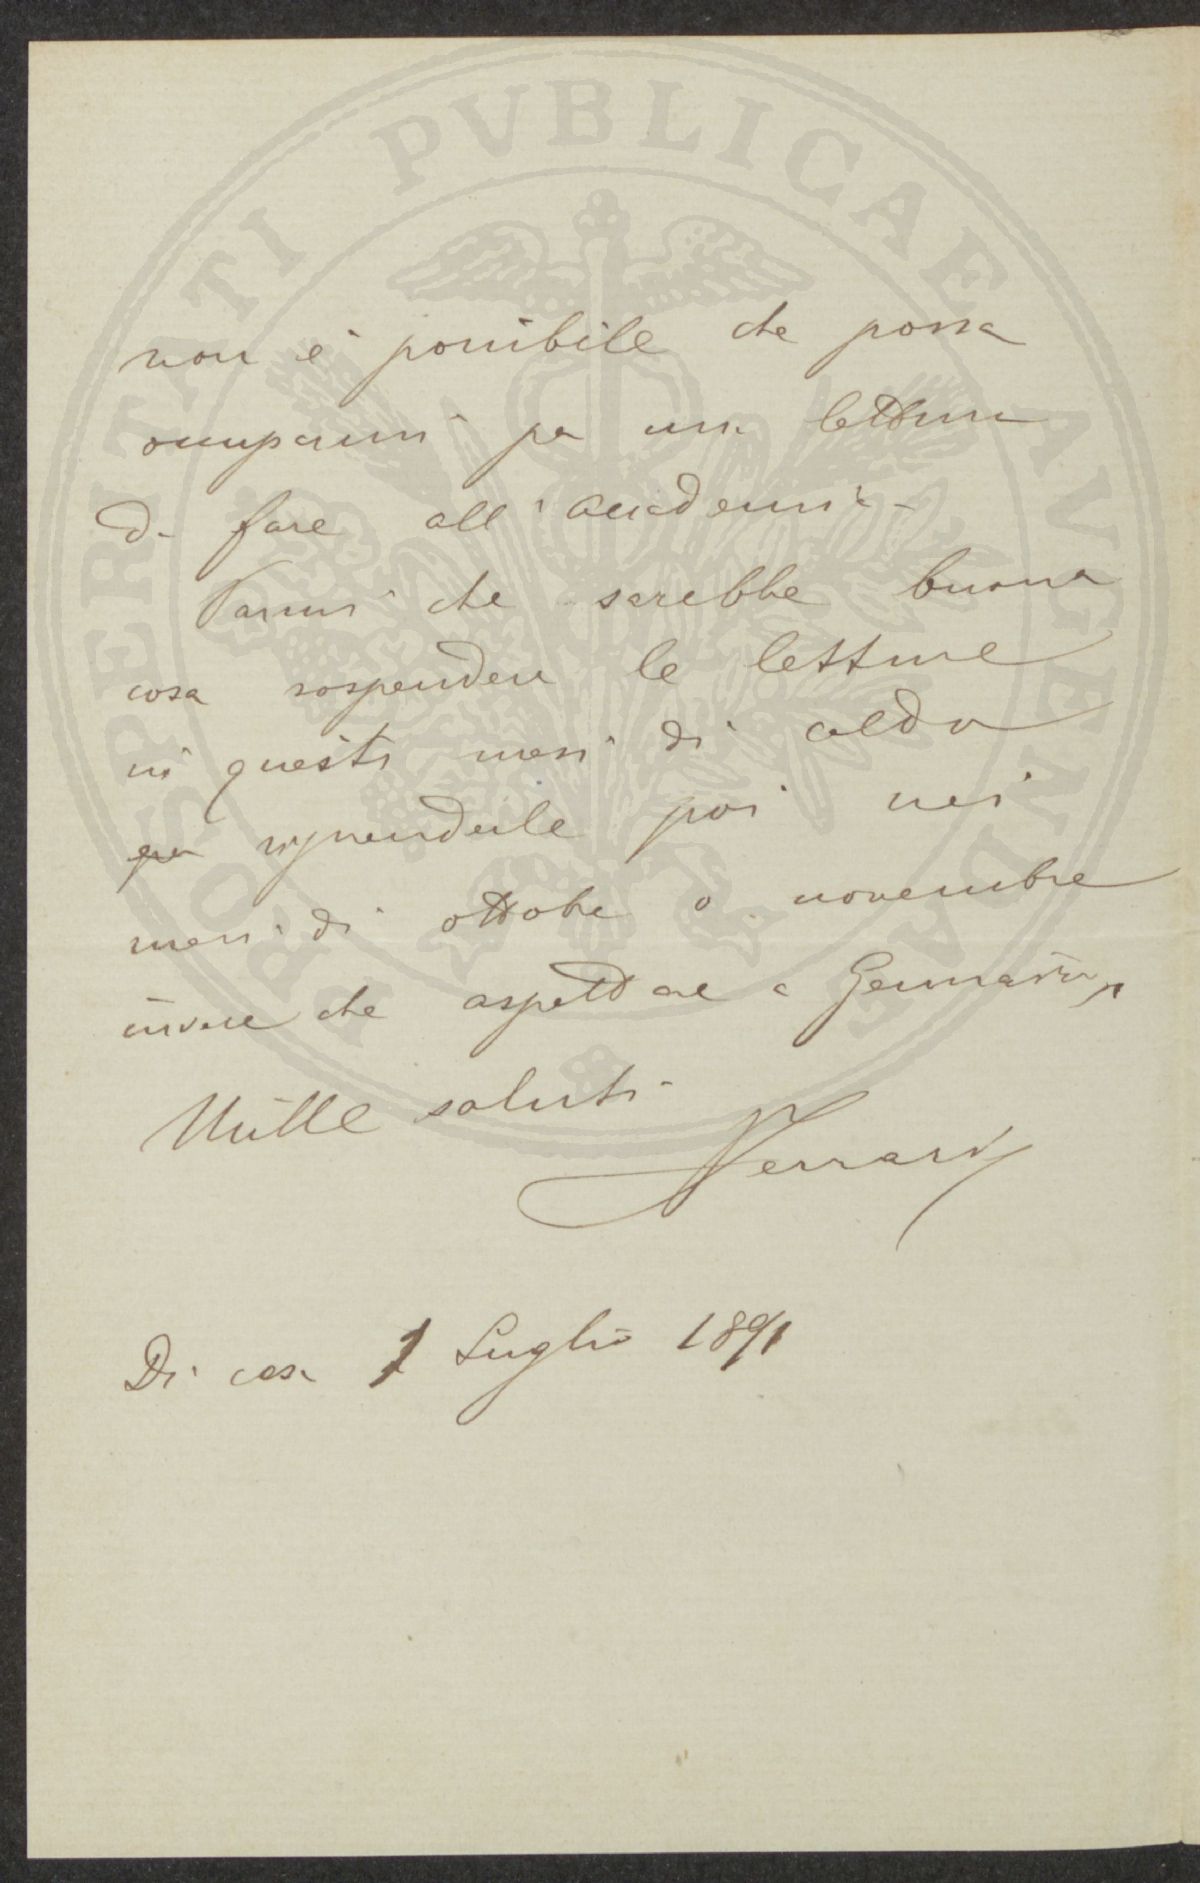 PROSPERITATI PVBLICAE AVGENDAE
non è possibile che possa
occuparmi per una lettura
da fare all'accademia -
Parmi che sarebbe buona
cosa sospendere le letture
in questi mesi di caldo
per riprenderle poi nei
mesi di ottobre o novembre
invece che aspettare a Gennaio,
Mille saluti
Ferrari
Di casa 1 Luglio 1891